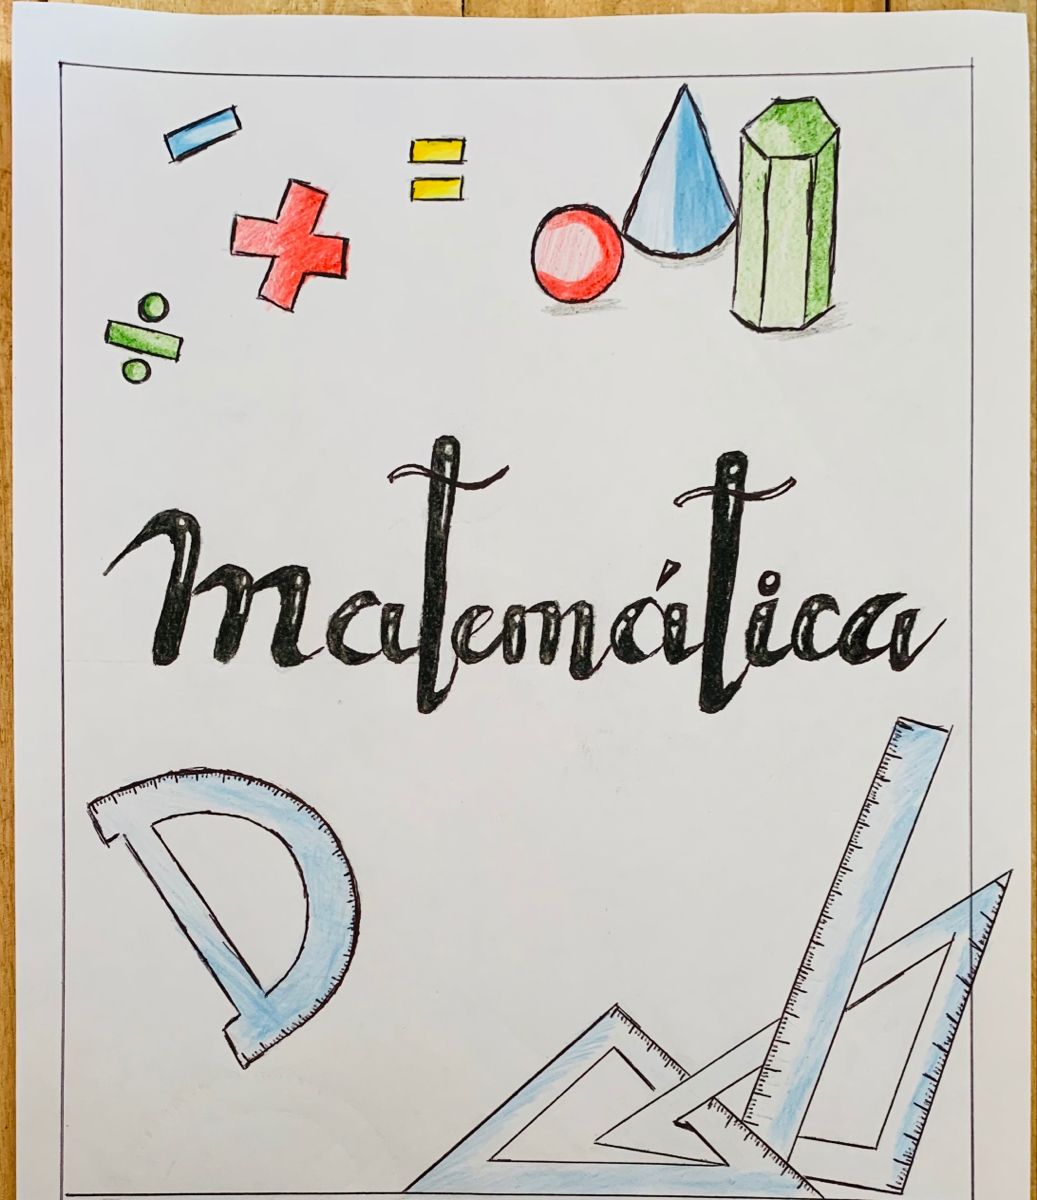 Matemática